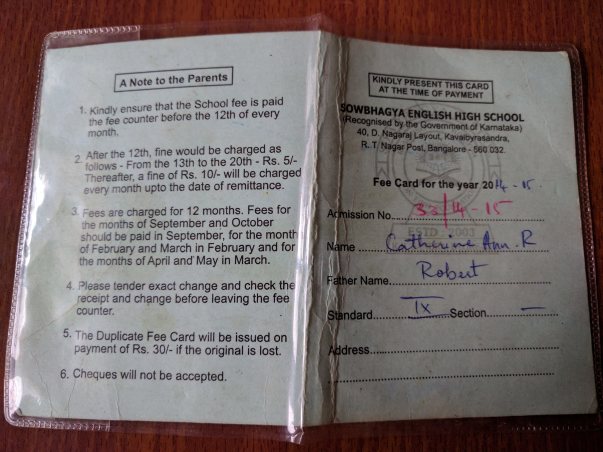 A Note to the Parents
1. Kindly ensure that the School fee is paid
the fee counter before the 12th of every
month.
2. After the 12th, fine would be charged as
follows - From the 13th to the 20th - Rs. 5/-
Thereafter, a fine of Rs. 10/- will be charged
every month upto the date of remittance.
3. Fees are charged for 12 months. Fees for
the months of September and October
should be paid in September, for the month
of February and March in February and for
the months of April and May in March.
4. Please tender exact change and check the
receipt and change before leaving the fee
counter.
5. The Duplicate Fee Card will be issued on
payment of Rs. 30/- if the original is lost.
6. Cheques will not be accepted.
KINDLY PRESENT THIS CARD
AT THE TIME OF PAYMENT
SOWBHAGYA ENGLISH HIGH SCHOOL
(Recognised by the Government of Karnataka)
40, D. Nagaraj Layout, Kavalbyrasandra,
R. T. Nagar Post, Bangalore - 560 032.
Fee Card for the year 2014 - 15.
Admission No. 33/14 - 15
ESTD : 2003
Name Catherine Ann. R
Father Name Robert
Standard IX Section —
Address